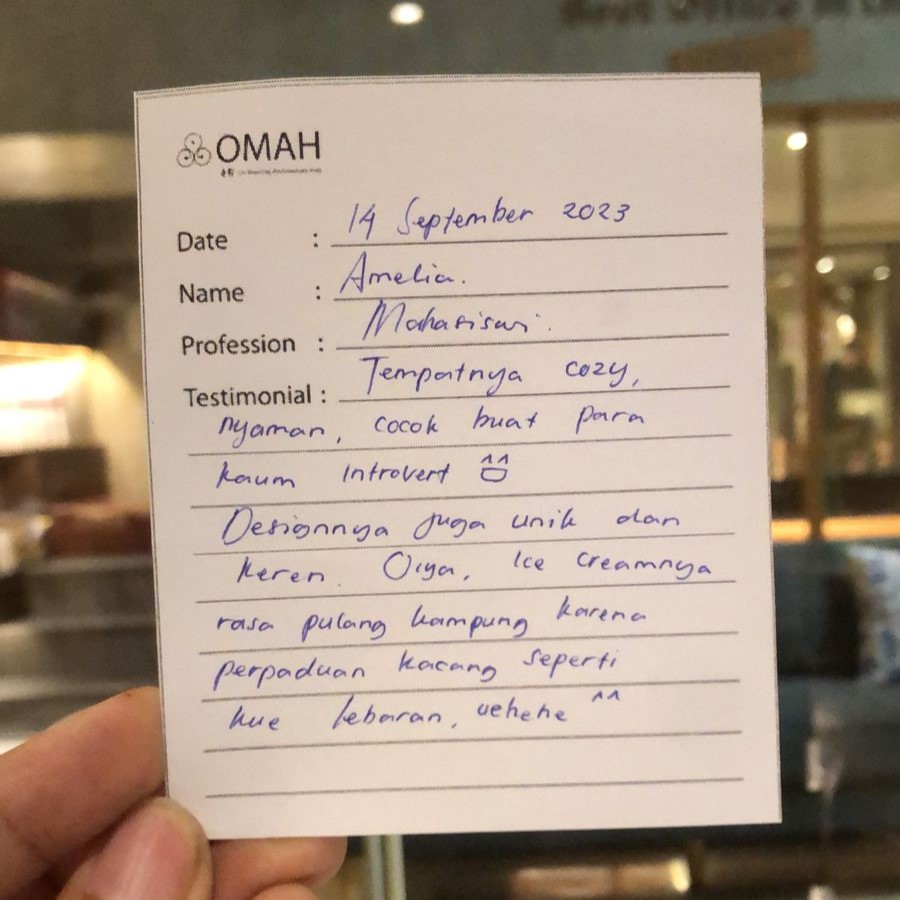 OMAH
Date : 14 September 2023
Name : Amelia.
Profession : Mahasiswi.
Testimonial : Tempatnya cozy,
nyaman, cocok buat para
kaum introvert
Designnya juga unik dan
keren. Oiya, Ice creamnya
rasa pulang kampung karena
perpaduan kacang seperti
kue lebaran, uehehe ^^